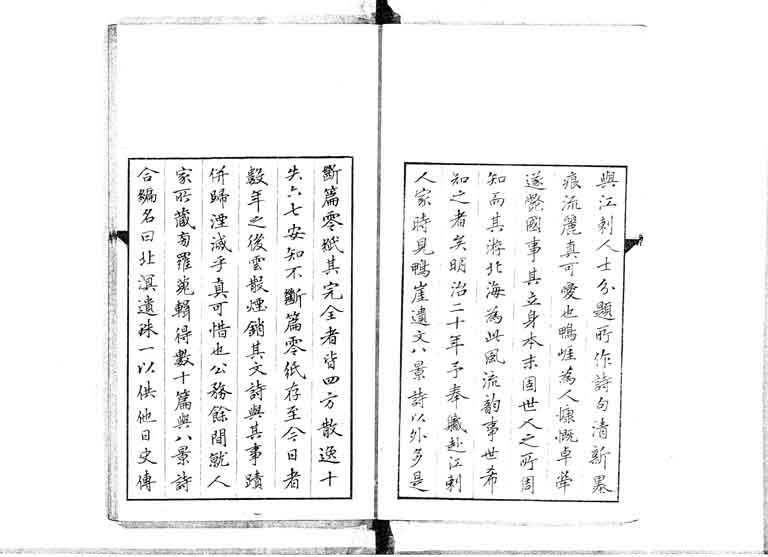 與江刺人士分題所作詩句清新墨
痕流麗真可愛也鴨崖為人慷慨卓犖
遂斃國事其立身本末固世人之所周
知而其游北海為此風流韵事世希
知之者矣明治二十年予奉職赴江刺
人家時見鴨崖遺文八景詩以外多是
斷篇零紙其完全者皆四方散逸十
失六七安知不斷篇零紙存至今日者
數年之後雲散煙銷其文詩與其事蹟
併歸湮滅乎真可惜也公務餘閒就人
家所藏旁羅蒐輯得數十篇與八景詩
合編名曰北溟遺珠一以供他日史傳